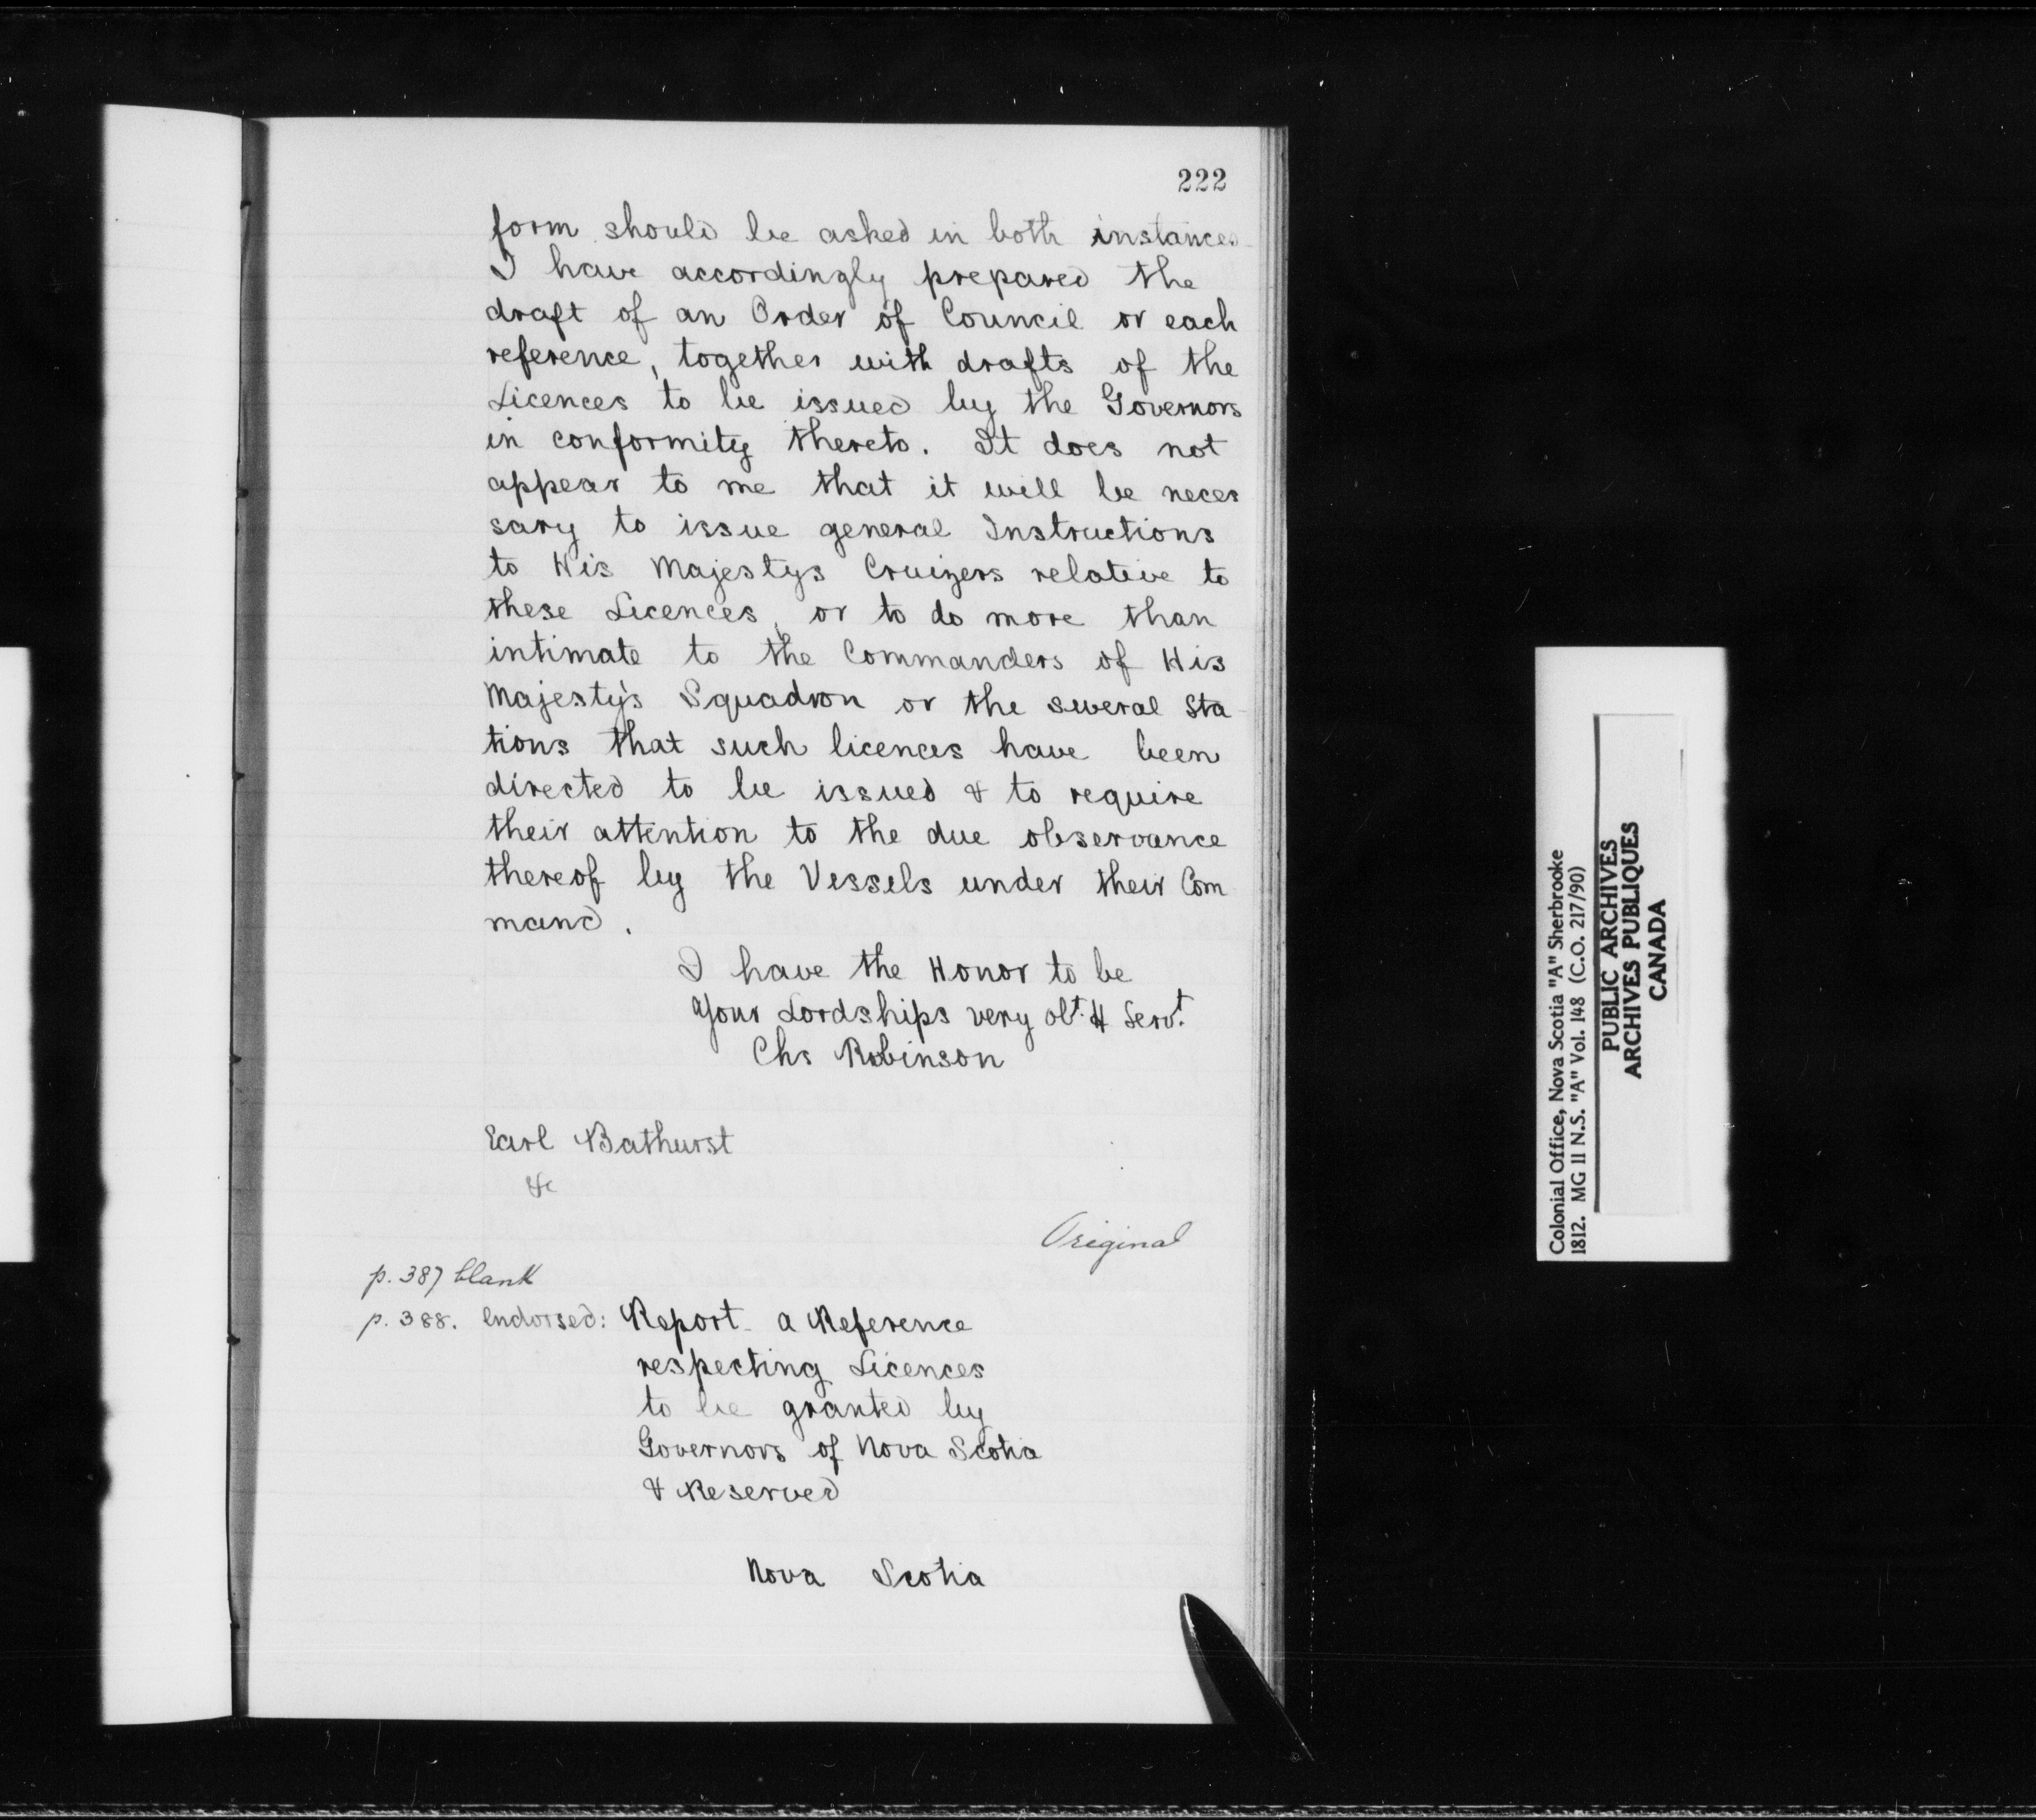 222
form should be asked in both instances
I have accordingly prepared the
draft of an Order of Council or each
reference, together with drafts of the
Licences to be issued by the Governors
in conformity thereto. It does not
appear to me that it will be neces
sary to issue general Instructions
to His Majestys Cruizers relative to
these Licences, or to do more than
intimate to the Commanders of His
Majesty's Squadron or the several Sta
tions that such licences have been
directed to be issued & to require
their attention to the due observance
thereof by the Vessels under their Com
mand.
I have the Honor to be
Your Lordships very obt. H Servt.
Chs Robinson
Earl Bathurst
&c
Original
p. 387 blank
p. 388. Endorsed: Report - a Reference
respecting Licences
to be granted by
Governors of Nova Scotia
& Reserved
Nova Scotia
Colonial Office, Nova Scotia "A" Sherbrooke
1812. MG 11 N.S. "A" Vol. 148 (C.O. 217/90)
PUBLIC ARCHIVES
ARCHIVES PUBLIQUES
CANADA